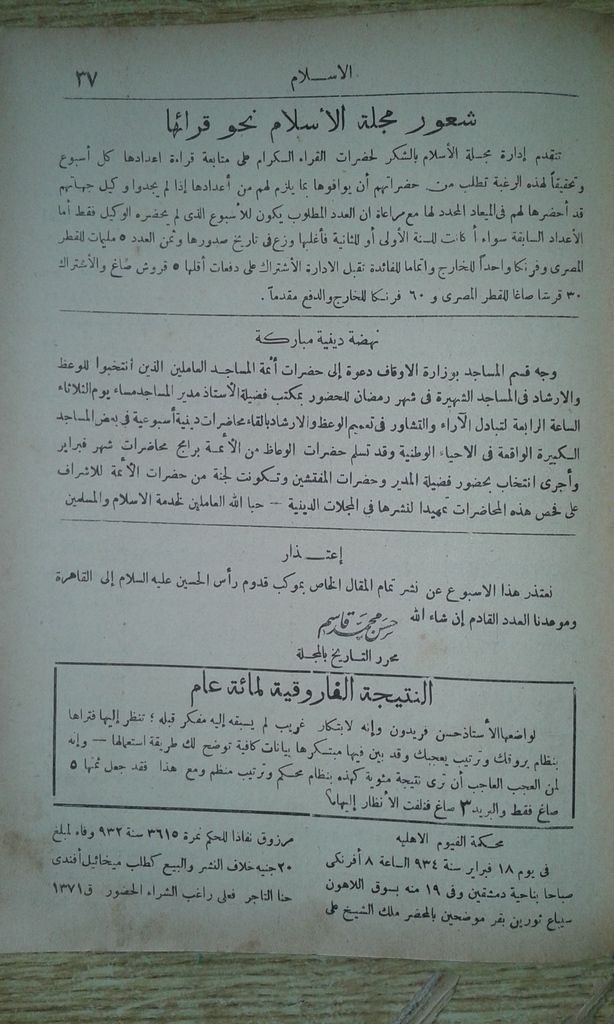 الاسلام
٣٧
شعور مجلة الأسلام نحو قرائها
تتقدم إدارة مجلة الأسلام بالشكر لحضرات القراء الكرام على متابعة قراءة اعدادها كل أسبوع
وتحقيقاً لهذه الرغبة تطلب من حضراتهم أن يوافوها بما يلزم لهم من أعدادها إذا لم يجدوا وكيل جهاتهم
قد أحضرها لهم فى الميعاد المحدد لها مع مراعاة ان العدد المطلوب يكون للأسبوع الذى لم يحضره الوكيل فقط أما
الأعداد السابقة سواء أ كانت للسنة الأولى أو للثانية فأغلبها وزع فى تاريخ صدورها وثمن العدد ٥ مليمات للقطر
المصرى وفرنكا واحداً للخارج واتماما للفائدة تقبل الادارة الأشتراك على دفعات أقلها ٥ قروش صاغ والأشتراك
٣٠ قرشا صاغا للقطر المصرى و ٦٠ فرنكا للخارج والدفع مقدماً .
نهضة دينية مباركة
وجه قسم المساجد بوزارة الاوقاف دعوة إلى حضرات أئمة المساجد العاملين الذين أنتخبوا للوعظ
والارشاد فى المساجد الشهيرة فى شهر رمضان للحضور بمكتب فضيلة الأستاذ مدير المساجد مساء يوم الثلاثاء
الساعة الرابعة لتبادل الآراء والتشاور فى تعميم الوعظ والارشاد بالقاء محاضرات دينية أسبوعية فى بعض المساجد
الكبيرة الواقعة فى الاحياء الوطنية وقد تسلم حضرات الوعاظ من الأئمة برامج محاضرات شهر فبراير
وأجرى انتخاب بحضور فضيلة المدير وحضرات المفتشين وتكونت لجنة من حضرات الأئمة للاشراف
على فحص هذه المحاضرات تمهيدا لنشرها في المجلات الدينية — حبا الله العاملين لخدمة الاسلام والمسلمين
إعتذار
نعتذر هذا الاسبوع عن نشر تمام المقال الخاص بموكب قدوم رأس الحسين عليه السلام إلى القاهرة
وموعدنا العدد القادم إن شاء الله
حسن محمد قاسم
محرر التاريخ بالمجلة
النتيجة الفاروقية لمائة عام
لواضعها الأستاذ حسن فريدون وإنه لابتكار غريب لم يسبقه إليه مفكر قبله ؛ تنظر إليها فتراها
بنظام يروقك وترتيب يعجبك وقد بين فيها مبتكرها بيانات كافية توضح لك طريقة استعمالها — وإنه
لمن العجب العاجب أن ترى نتيجة مئوية كهذه بنظام محكم وترتيب منظم ومع هذا فقد جعل ثمنها ٥
صاغ فقط والبريد ٣ صاغ فنلفت الأنظار إليها
محكمة الفيوم الاهليه
فى يوم ١٨ فبراير سنة ٩٣٤ الساعة ٨ أفرنكى
صباحا بناحية دمشقين وفى ١٩ منه بسوق اللاهون
سيباع ثورين بقر موضحين بالمحضر ملك الشيخ على
مرزوق نفاذا للحكم نمرة ٣٦١٥ سنة ٩٣٢ وفاء لمبلغ
٢٠ جنيه خلاف النشر والبيع كطلب ميخائيل أفندى
حنا التاجر فعلى راغب الشراء الحضور ق ١٣٧١